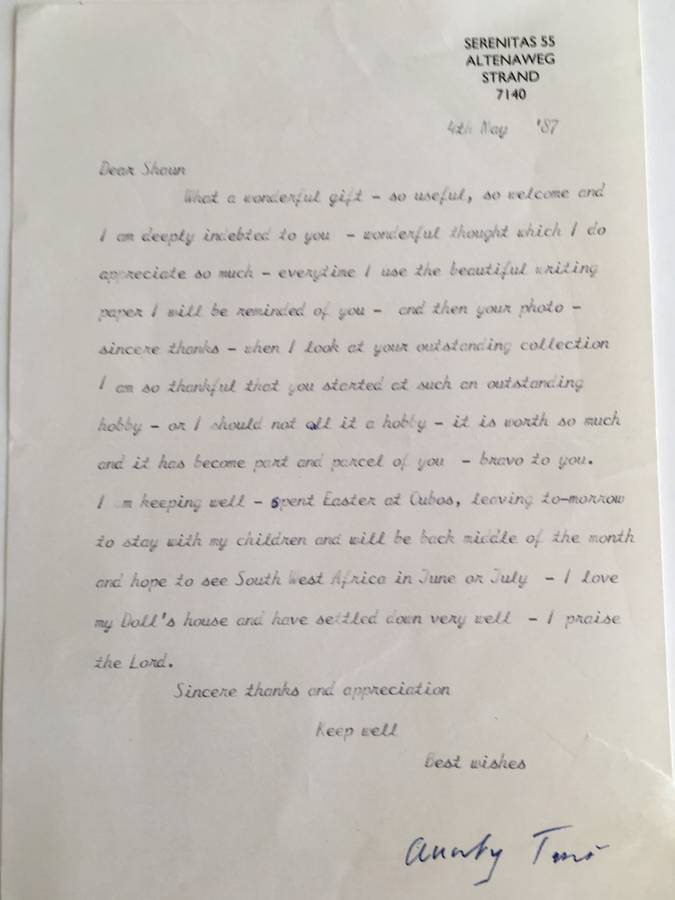 SERENITAS 55
ALTENAWEG
STRAND
7140
4th May '87
Dear Shaun
What a wonderful gift - so useful, so welcome and
I am deeply indebted to you - wonderful thought which I do
appreciate so much - everytime I use the beautiful writing
paper I will be reminded of you - and then your photo -
sincere thanks - when I look at your outstanding collection
I am so thankful that you started at such an outstanding
hobby - or I should not all it a hobby - it is worth so much
and it has become part and parcel of you - bravo to you.
I am keeping well - spent Easter at Oubos, leaving to-morrow
to stay with my children and will be back middle of the month
and hope to see South West Africa in June or July - I love
my Doll's house and have settled down very well - I praise
the Lord.
Sincere thanks and appreciation
Keep well
Best wishes
Aunty